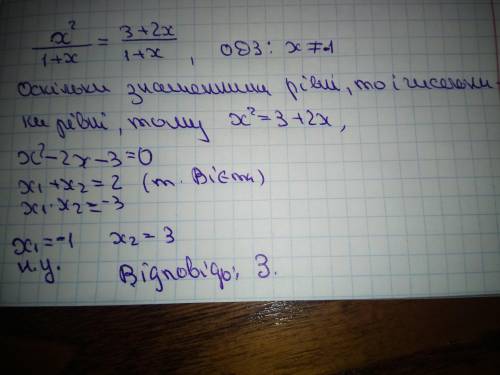 x²/(1+x) = (3+2x)/(1+x), ОДЗ: x≠-1
Оскільки знаменники рівні, то і чисельни-
ки рівні, тому x²=3+2x,
x²-2x-3=0
x₁+x₂=2 (т. Вієта)
x₁·x₂=-3
x₁=-1 x₂=3
н.у.
Відповідь: 3.